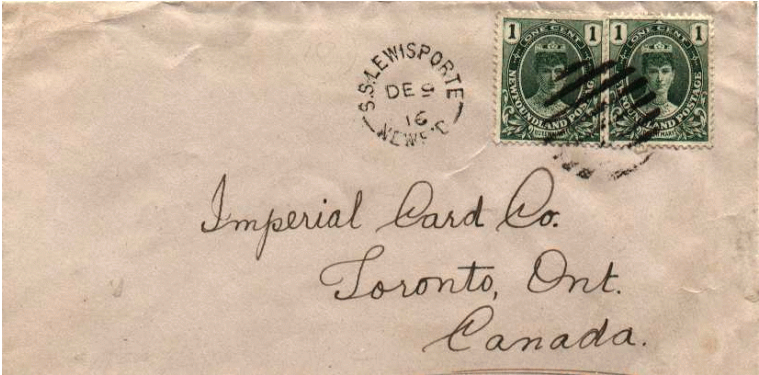 S.S. LEWISPORTE
DE 9
16
NEWF'D
1 ONE CENT 1
NEWFOUNDLAND POSTAGE
QUEEN MARY
1 ONE CENT 1
NEWFOUNDLAND POSTAGE
QUEEN MARY
Imperial Card Co.
Toronto, Ont.
Canada.